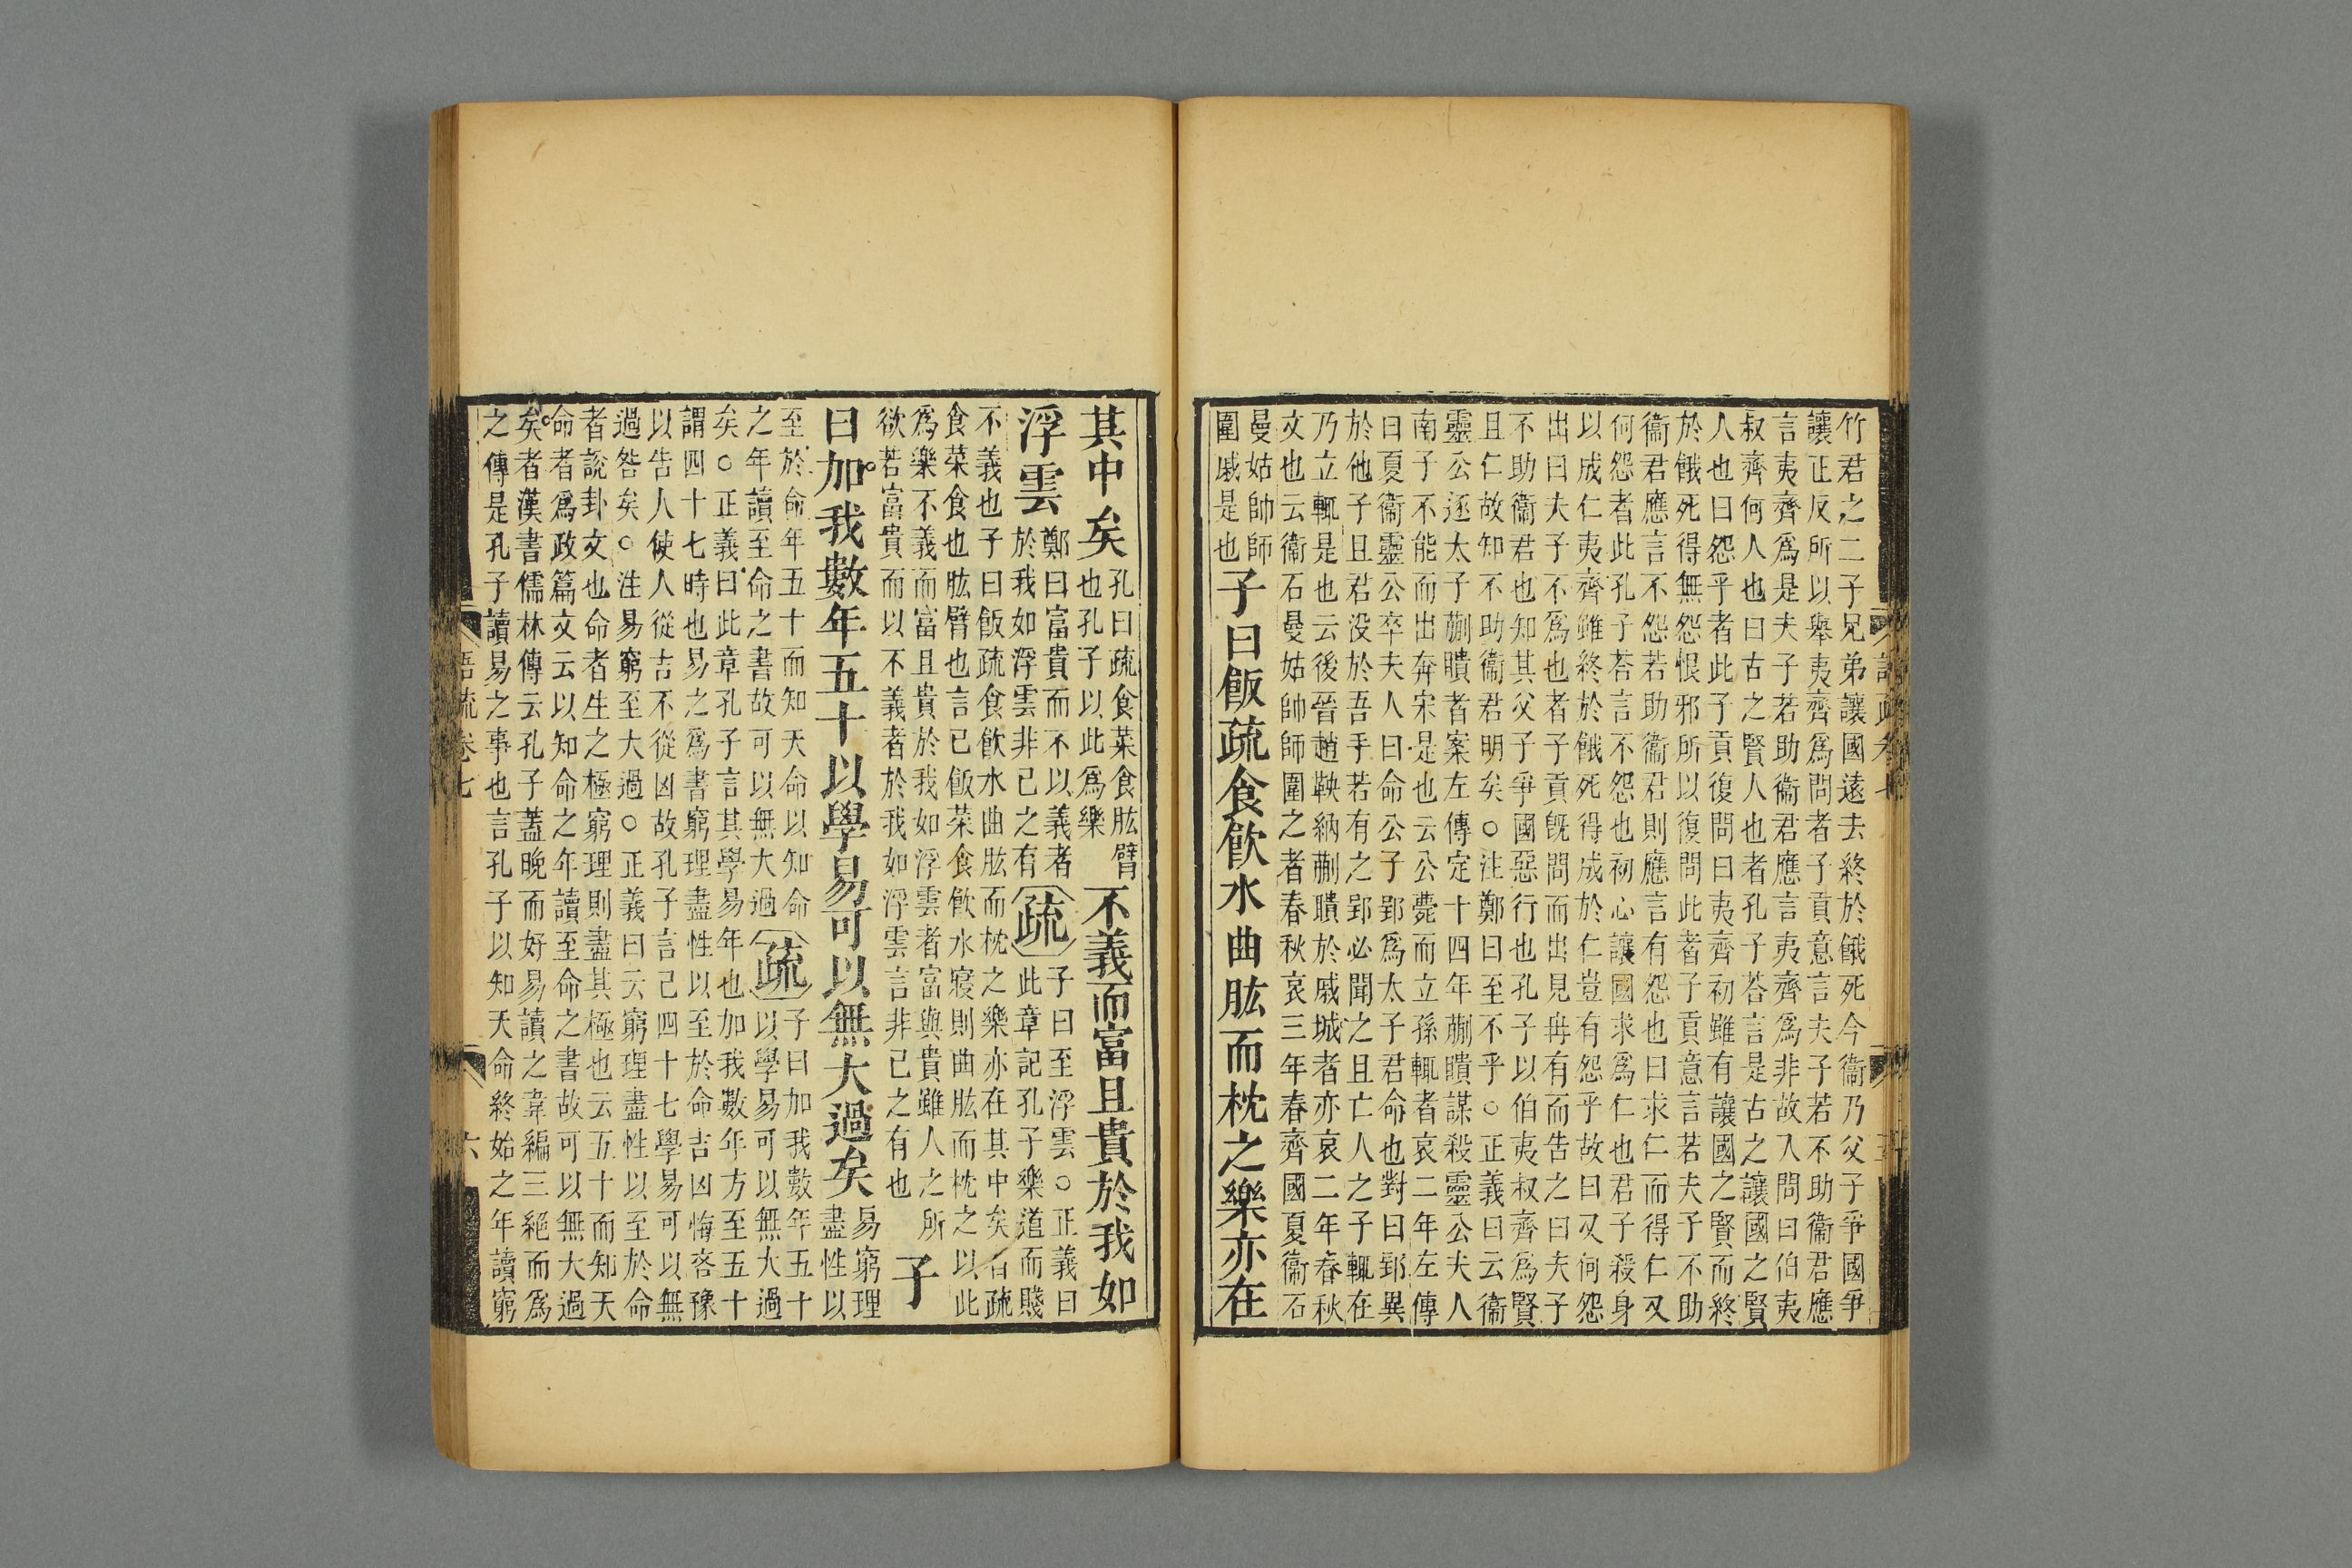 竹君之二子兄弟讓國遠去終於餓死今衞乃父子爭國爭
讓正反所以舉夷齊爲問者子貢意言夫子若不助衞君應
言夷齊爲是夫子若助衞君應言夷齊爲非故入問曰伯夷
叔齊何人也曰古之賢人也者孔子荅言是古之讓國之賢
人也曰怨乎者此子貢復問曰夷齊初雖有讓國之賢而終
於餓死得無怨恨邪所以復問此者子貢意言若夫子不助
衞君應言不怨若助衞君則應言有怨也曰求仁而得仁又
何怨者此孔子荅言不怨也初心讓國求爲仁也君子殺身
以成仁夷齊雖終於餓死得成於仁豈有怨乎故曰又何怨
出曰夫子不爲也者子貢旣問而出見冉有而告之曰夫子
不助衞君也知其父子爭國惡行也孔子以伯夷叔齊爲賢
且仁故知不助衞君明矣○注鄭曰至不乎○正義曰云衞
靈公逐太子蒯聵者案左傳定十四年蒯聵謀殺靈公夫人
南子不能而出奔宋是也云公薨而立孫輒者哀二年左傳
曰夏衞靈公卒夫人曰命公子郢爲太子君命也對曰郢異
於他子且君没於吾手若有之郢必聞之且亡人之子輒在
乃立輒是也云後晉趙鞅納蒯聵於戚城者亦哀二年春秋
文也云衞石曼姑帥師圍之者春秋哀三年春齊國夏衞石
曼姑帥師
圍戚是也
子曰飯疏食飮水曲肱而枕之樂亦在
其中矣
孔曰疏食菜食肱臂
也孔子以此爲樂
不義而富且貴於我如
浮雲
鄭曰富貴而不以義者
於我如浮雲非己之有
疏
子曰至浮雲○正義曰
此章記孔子樂道而賤
不義也子曰飯疏食飮水曲肱而枕之樂亦在其中矣者疏
食菜食也肱臂也言己飯菜食飮水寢則曲肱而枕之以此
爲樂不義而富且貴於我如浮雲者富與貴雖人之所
欲若富貴而以不義者於我如浮雲言非己之有也
子
曰加我數年五十以學易可以無大過矣
易窮理
盡性以
至於命年五十而知天命以知命
之年讀至命之書故可以無大過
疏
子曰加我數年五十
以學易可以無大過
矣○正義曰此章孔子言其學易年也加我數年方至五十
謂四十七時也易之爲書窮理盡性以至於命吉凶悔吝豫
以告人使人從吉不從凶故孔子言己四十七學易可以無
過咎矣○注易窮至大過○正義曰云窮理盡性以至於命
者說卦文也命者生之極窮理則盡其極也云五十而知天
命者爲政篇文云以知命之年讀至命之書故可以無大過
矣者漢書儒林傳云孔子蓋晚而好易讀之韋編三絕而爲
之傳是孔子讀易之事也言孔子以知天命終始之年讀窮
語疏卷七
六